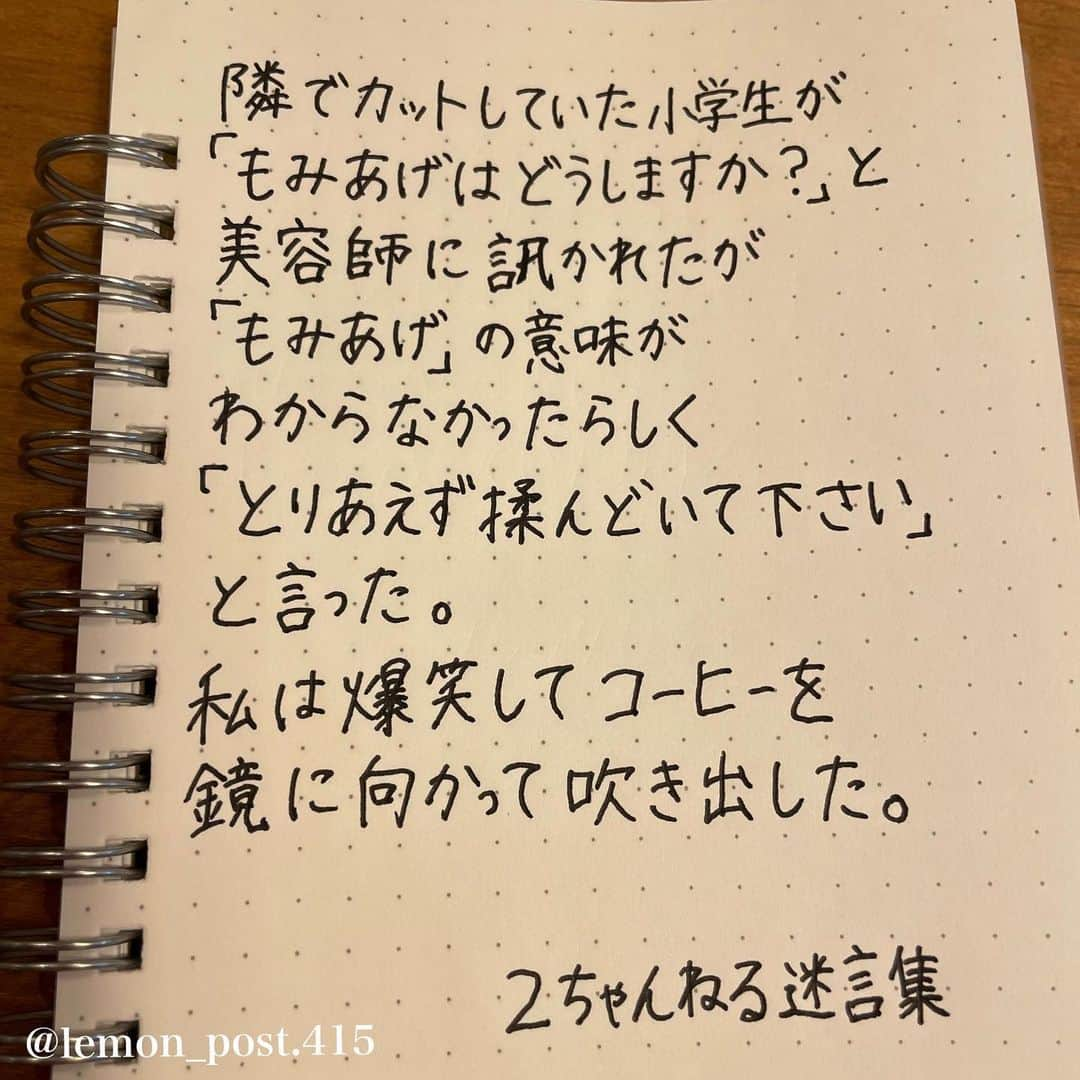 隣でカットしていた小学生が
「もみあげはどうしますか?」と
美容師に訊かれたが
「もみあげ」の意味が
わからなかったらしく
「とりあえず揉んどいて下さい」
と言った。
私は爆笑してコーヒーを
鏡に向かって吹き出した。
2ちゃんねる迷言集
@lemon_post.415